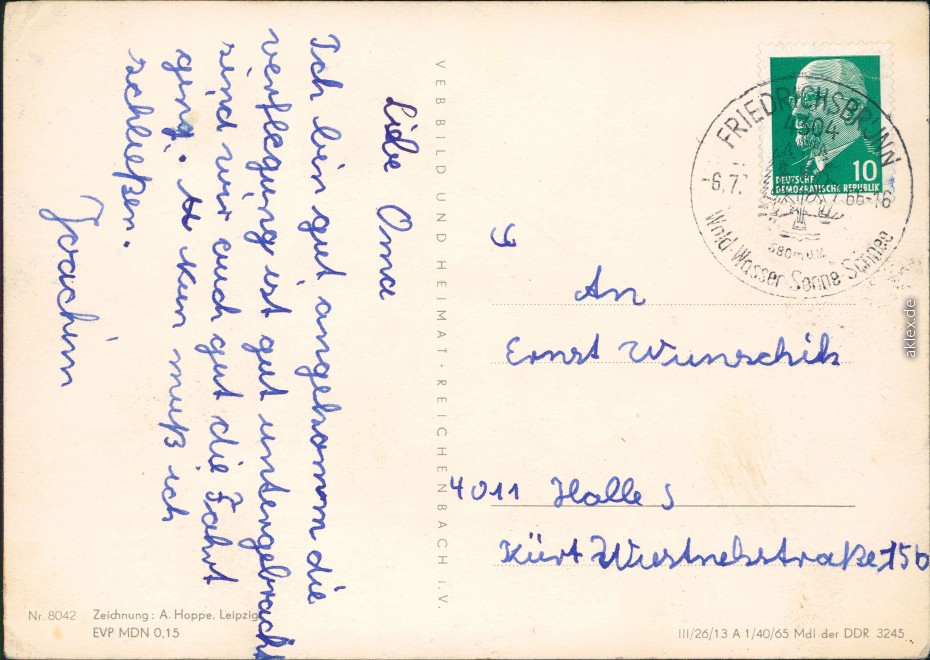 Liebe Oma
Ich bin gut angekomm die
verflegung ist gut untergebracht
sind wir auch gut die Fahrt
ging. Nun muß ich
schließen.
Joachim
VEB BILD UND HEIMAT · REICHENBACH I. V.
FRIEDRICHSBRUNN
4304
-6.7.
66-16
580m ü.M.
Wald-Wasser-Sonne-Schnee
10
DEUTSCHE
DEMOKRATISCHE REPUBLIK
An
Ernst Wunschik
4011 Halle S
Kurt Wüstnebstraße 15b
aklex.de
Nr. 8042 Zeichnung: A. Hoppe, Leipzig
EVP MDN 0,15
III/26/13 A 1/40/65 MdI der DDR 3245